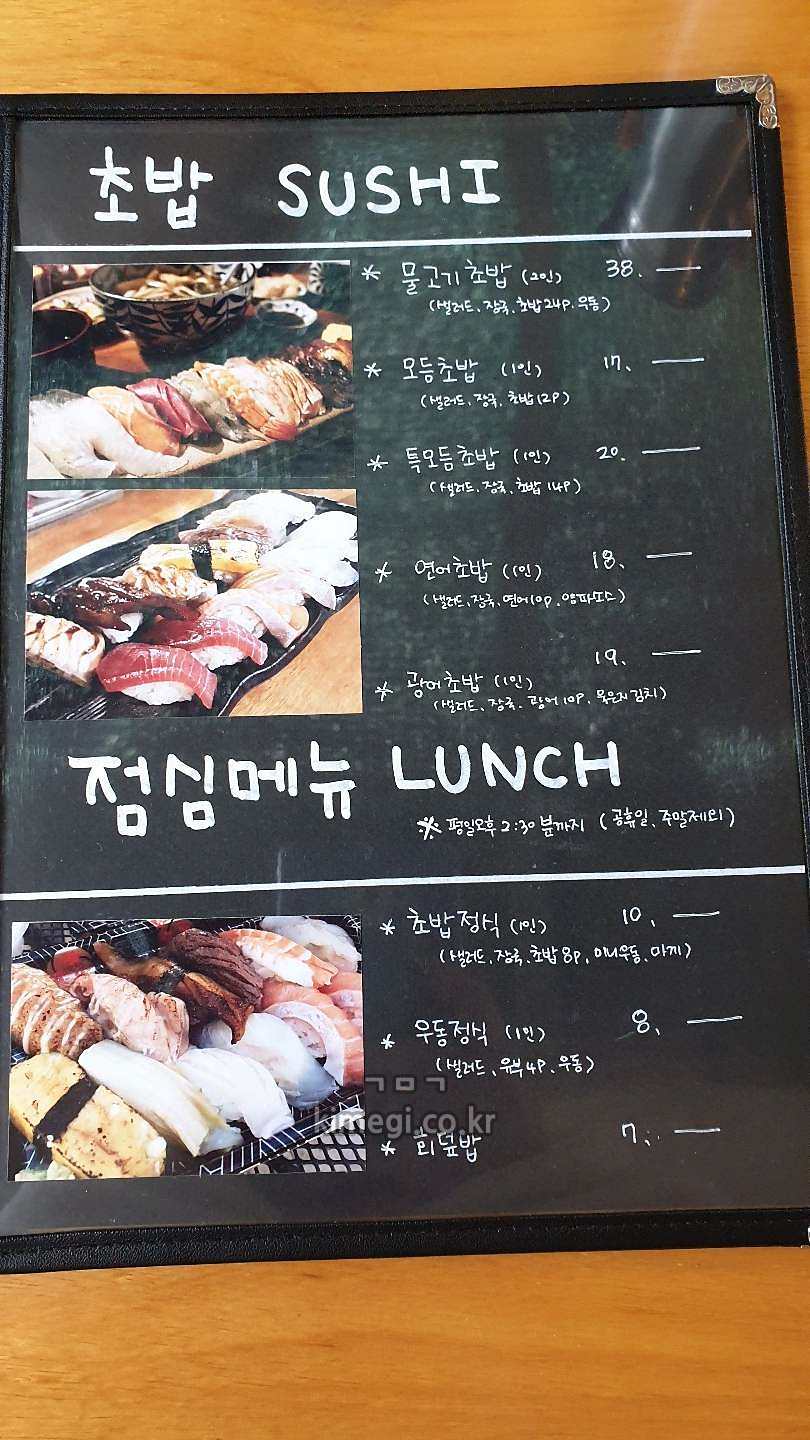 초밥 SUSHI
* 물고기초밥 (2인) 38. —
(샐러드, 장국, 초밥24P. 우동)
* 모듬초밥 (1인) 17. —
(샐러드, 장국, 초밥12P)
* 특모듬초밥 (1인) 20. —
(샐러드, 장국, 초밥14P)
* 연어초밥 (1인) 18. —
(샐러드, 장국, 연어10P, 양파소스)
* 광어초밥 (1인) 19. —
(샐러드, 장국, 광어10P, 묵은지김치)
점심메뉴 LUNCH
※ 평일오후 2:30분까지 (공휴일, 주말제외)
* 초밥정식 (1인) 10, —
(샐러드, 장국, 초밥8P, 미니우동, 마끼)
* 우동정식 (1인) 8, —
(샐러드, 유부4P, 우동)
ㄱㅁㄱ
kimegi.co.kr
* 회덮밥 7, —